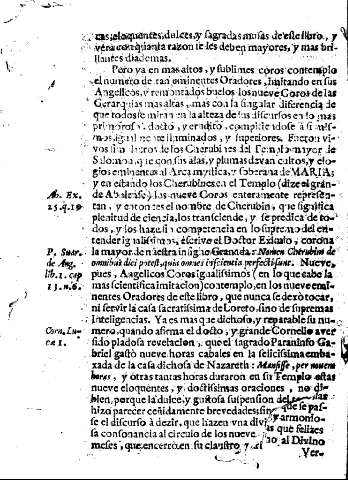 cas, eloquentes, dulces, y sagradas musas de este libro, y
verà con quanta razon se les deben mayores, y mas bri-
llantes diademas.
Pero ya en mas altos, y sublimes coros contemplo
el numero de tan eminentes Oradores, imitando en sus
Angelicos, y remontados buelos los nueve Coros de las
Gerarquias mas altas, mas con la singular diferencia de
que todos se miran en la alteza de sus discursos en lo mas
primoroso, docto, y erudito, compitiendose à si mis-
mos, igualmente iluminados, y superiores. Fueron vi-
vos
de los Cherubines del Templo mayor de
Salomon, que con sus alas, y plumas davan cultos, y elo-
gios eminentes al Arca mystica, y soberana de MARIA;
y en estando los Cherubines en el Templo (dize el gran-
Ab. Ex.
25. q. 19
de Abulense) las nueve Coros enteramente represen-
tan, y entonces el nombre de Cherubin, que significa
plenitud de ciencia, los transciende, y se predica de to-
dos, y los haze sin competencia en lo supremo del en-
tender igualissimos, escrive el Doctor Eximio, corona
P. Suar.
de Ang.
lib. 1. cap
13. n. 6.
la mayor de nuestra insigne Granada: Nomen Cherubim de
omnibus dici potest, quia omnes scientia perfectissimi. Nueve,
pues, Angelicos Coros igualissimos (en lo que cabe la
mas scientifica imitacion) contemplo, en los nueve emi-
nentes Oradores de este libro, que nunca se dexò tocar,
ni servir la casa sacratissima de Loreto, sino de supremas
Inteligencias. Ya es mas que dichoso, y reparable su nu-
Corn. Lu-
cæ 1.
mero, quando afirma el docto, y grande Cornelio aver
sido piadosa revelacion, que el sagrado Paraninfo Ga-
briel gastò nueve horas cabales en la felicissima emba-
xada de la casa dichosa de Nazareth: Mansisse, per novem
horas, y otras tantas horas duraron en su Templo estas
nueve eloquentes, y doctissimas oraciones, no di-
bien, porque la dulce, y gustosa suspension de
las
hizo parecer ceñidamente brevedades; sin que se pas-
se el discurso à dezir, que hazen una divi
y armonio-
sa consonancia al circulo de los nueve
as que felizes
meses, que encerrò en su claustro, y el
no al Divino
Ver-